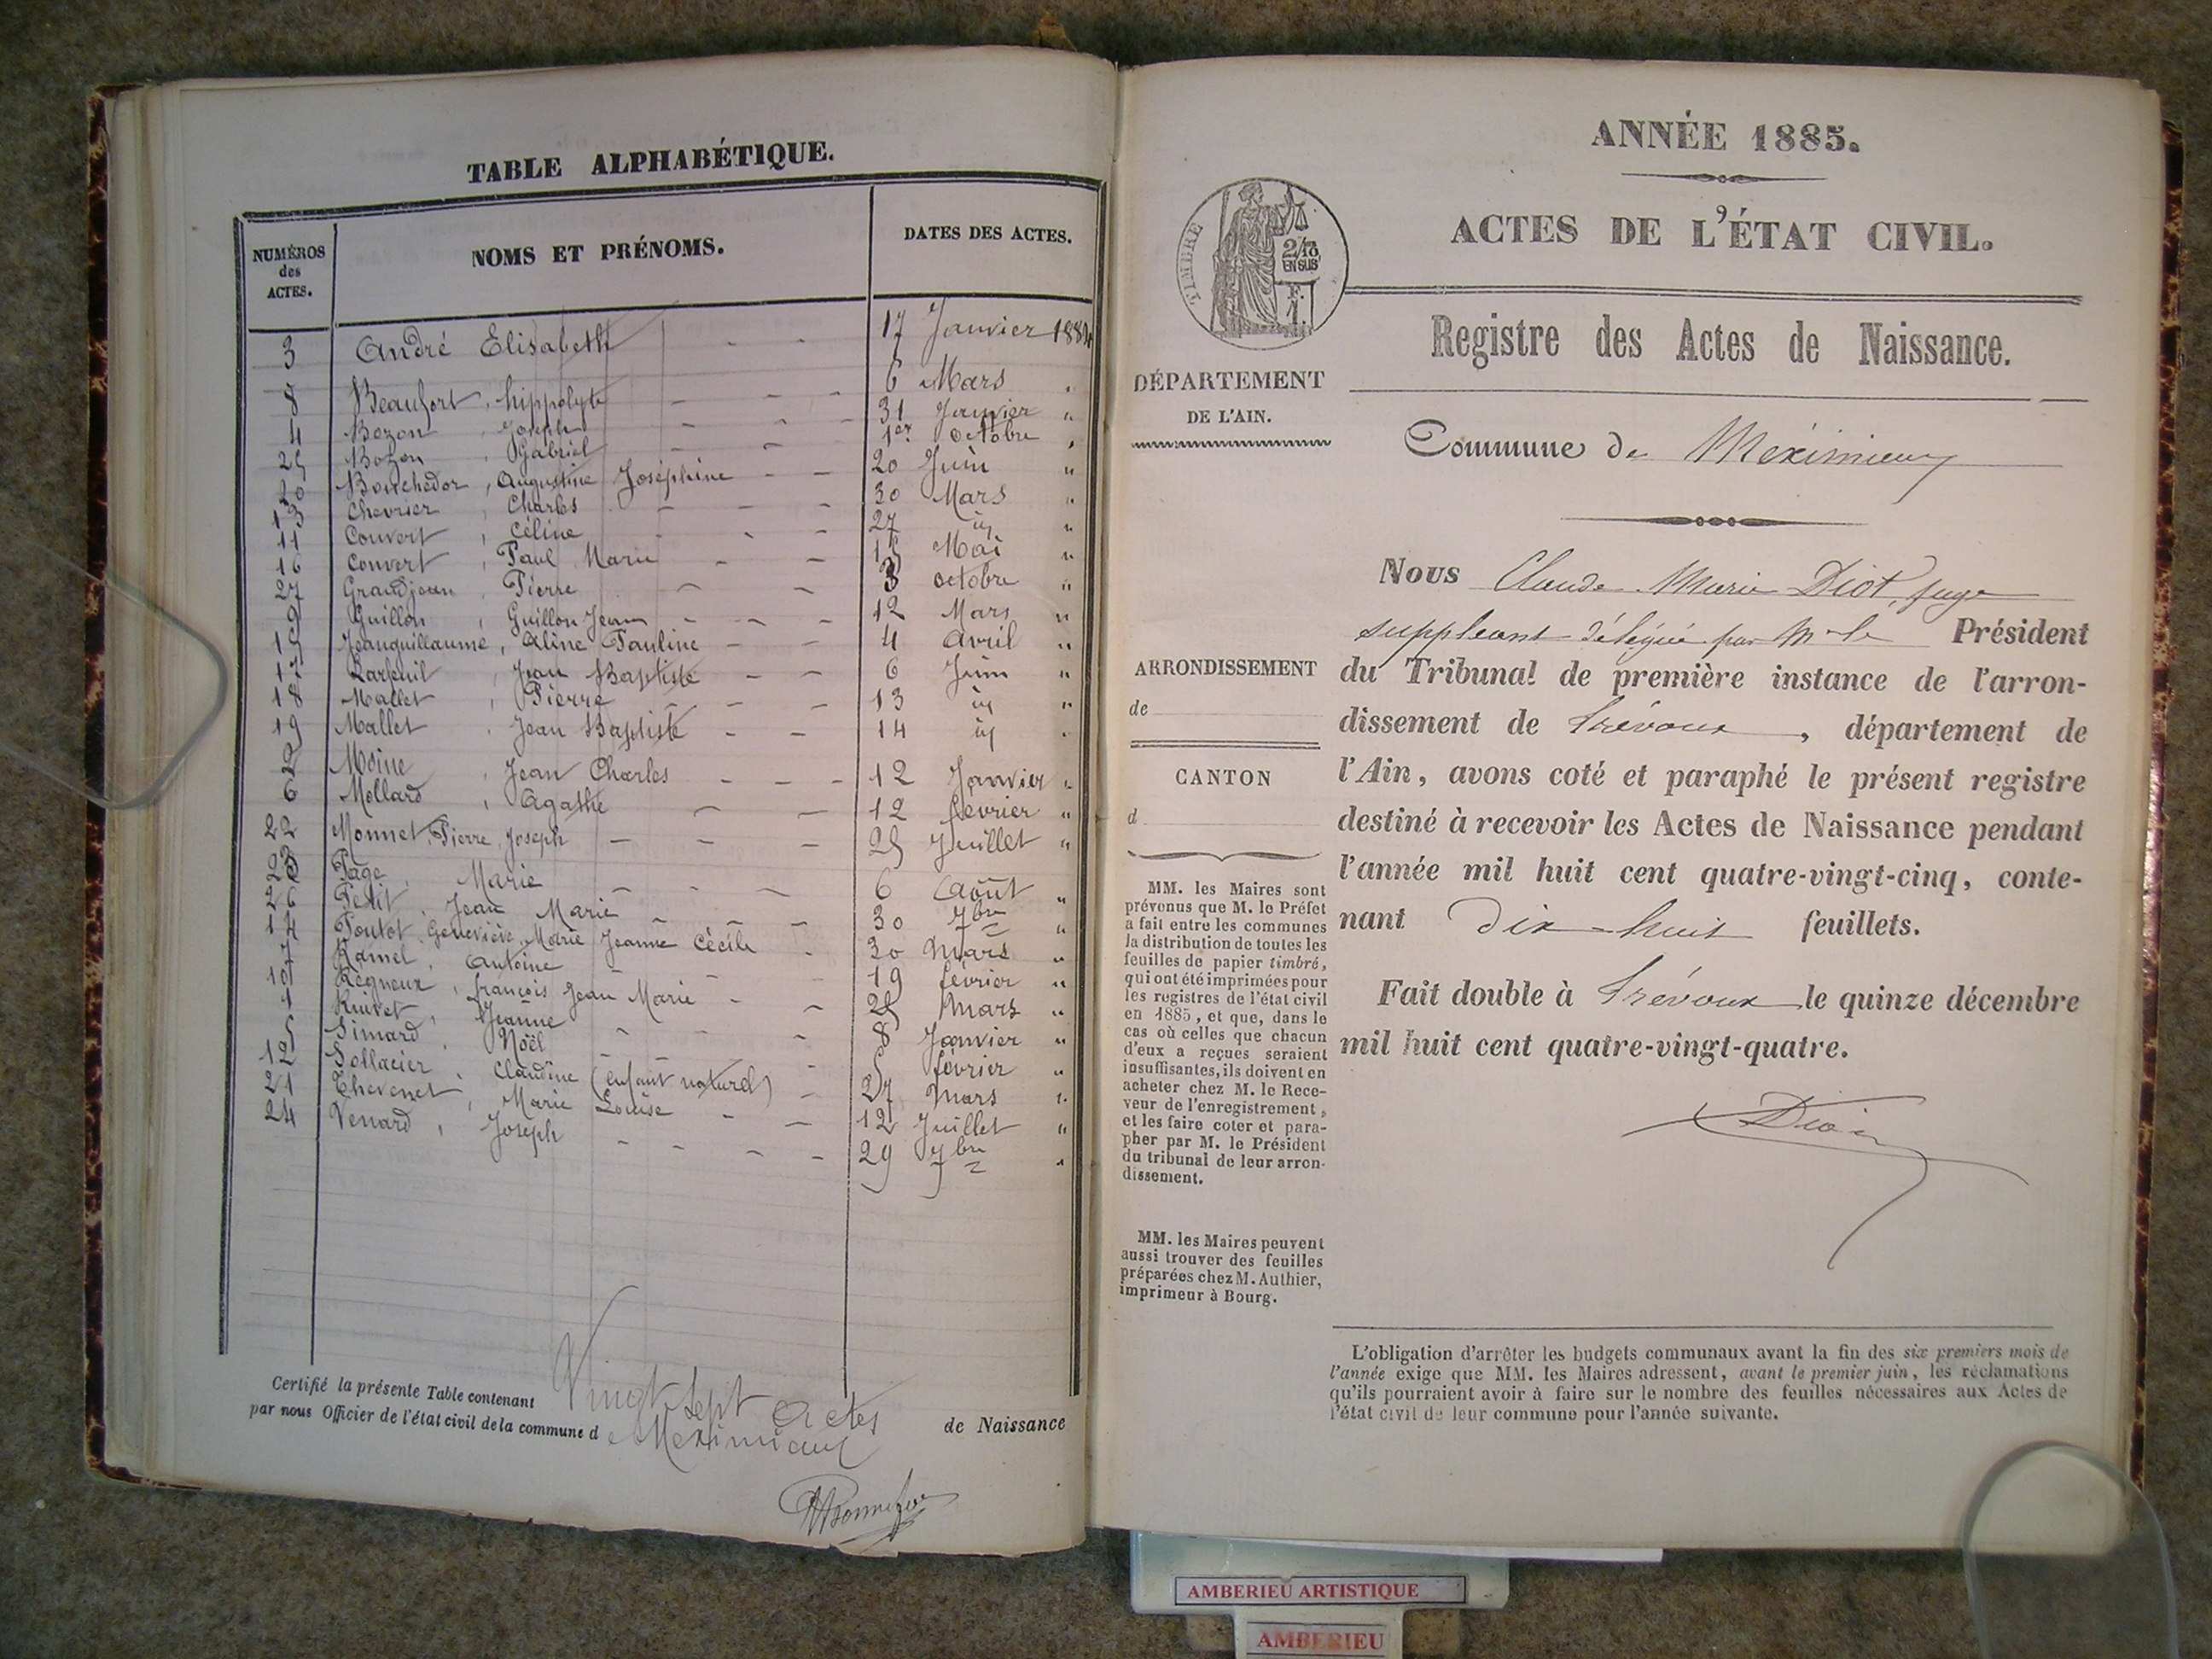 TABLE ALPHABÉTIQUE.
NUMÉROS des ACTES. NOMS ET PRÉNOMS. DATES DES ACTES.
3 André Elisabeth 17 Janvier 1884
8 Beaufort, hippolyte 6 Mars "
4 Bozon, Joseph 31 Janvier "
25 Bozon, Gabriel 1er octobre "
20 Bouchedor, Augustine Joséphine 20 Juin "
13 Chevrier, Charles 30 Mars "
11 Convert, Céline 27 id "
16 Convert, Paul Marie 15 Mai "
27 Grandjean, Pierre 3 octobre "
9 Guillon, Guillon Jean 12 Mars "
15 Jeanguillaume, Aline Pauline 4 Avril "
17 Jean Baptiste 6 Juin "
18 Mallet, Pierre 13 id "
19 Mallet, Jean Baptiste 14 id "
2 Moine, Jean Charles 12 Janvier "
6 Mollard, Agathe 12 février "
22 Monnet, Pierre, Joseph 25 Juillet "
23 Page, Marie 6 Août "
26 Petit, Jean Marie 30 7bre "
14 Poutot, Geneviève, Marie Jeanne Cécile 30 Mars "
7 Ramel, Antoine 19 février "
10 Régneux, françois Jean Marie 25 Mars "
1 Ruivet, Jeanne 8 Janvier "
5 Simard, Noël 5 février "
12 Sollacier, Claudine (enfant naturel) 27 Mars "
21 Thevenet, Marie Louise 12 Juillet "
24 Venard, Joseph 29 7bre "
Certifié la présente Table contenant Vingt sept actes de Naissance
par nous Officier de l'état civil de la commune d Meximieux
ANNÉE 1885.
ACTES DE L'ÉTAT CIVIL.
TIMBRE
2/10
EN SUS
F.
1.
Registre des Actes de Naissance.
DÉPARTEMENT
DE L'AIN.
Commune de Meximieux
Nous Claude Marie Diot, juge
suppléant délégué par Mr le Président
du Tribunal de première instance de l'arron-
dissement de Trévoux, département de
l'Ain, avons coté et paraphé le présent registre
destiné à recevoir les Actes de Naissance pendant
l'année mil huit cent quatre-vingt-cinq, conte-
nant dix-huit feuillets.
Fait double à Trévoux le quinze décembre
mil huit cent quatre-vingt-quatre.
Diot
ARRONDISSEMENT
de
CANTON
d
MM. les Maires sont
prévenus que M. le Préfet
a fait entre les communes
la distribution de toutes les
feuilles de papier timbré,
qui ont été imprimées pour
les registres de l'état civil
en 1885, et que, dans le
cas où celles que chacun
d'eux a reçues seraient
insuffisantes, ils doivent en
acheter chez M. le Rece-
veur de l'enregistrement,
et les faire coter et para-
pher par M. le Président
du tribunal de leur arron-
dissement.
MM. les Maires peuvent
aussi trouver des feuilles
préparées chez M. Authier,
imprimeur à Bourg.
L'obligation d'arrêter les budgets communaux avant la fin des six premiers mois de
l'année exige que MM. les Maires adressent, avant le premier juin, les réclamations
qu'ils pourraient avoir à faire sur le nombre des feuilles nécessaires aux Actes de
l'état civil de leur commune pour l'année suivante.
AMBERIEU ARTISTIQUE
AMBERIEU